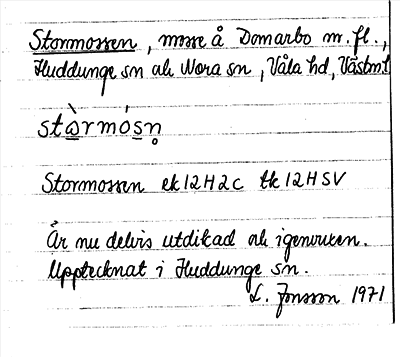 Stormossen, mosse å Domarbo m. fl.,
Huddunge sn ak Nora sn, Våla hd, Västml
stὰrmósn̥
Stormossen ek 12H2c tk 12HSV
Är nu delvis utdikad ak igenvuxen.
Upptecknat i Huddunge sn.
L. Jonsson 1971